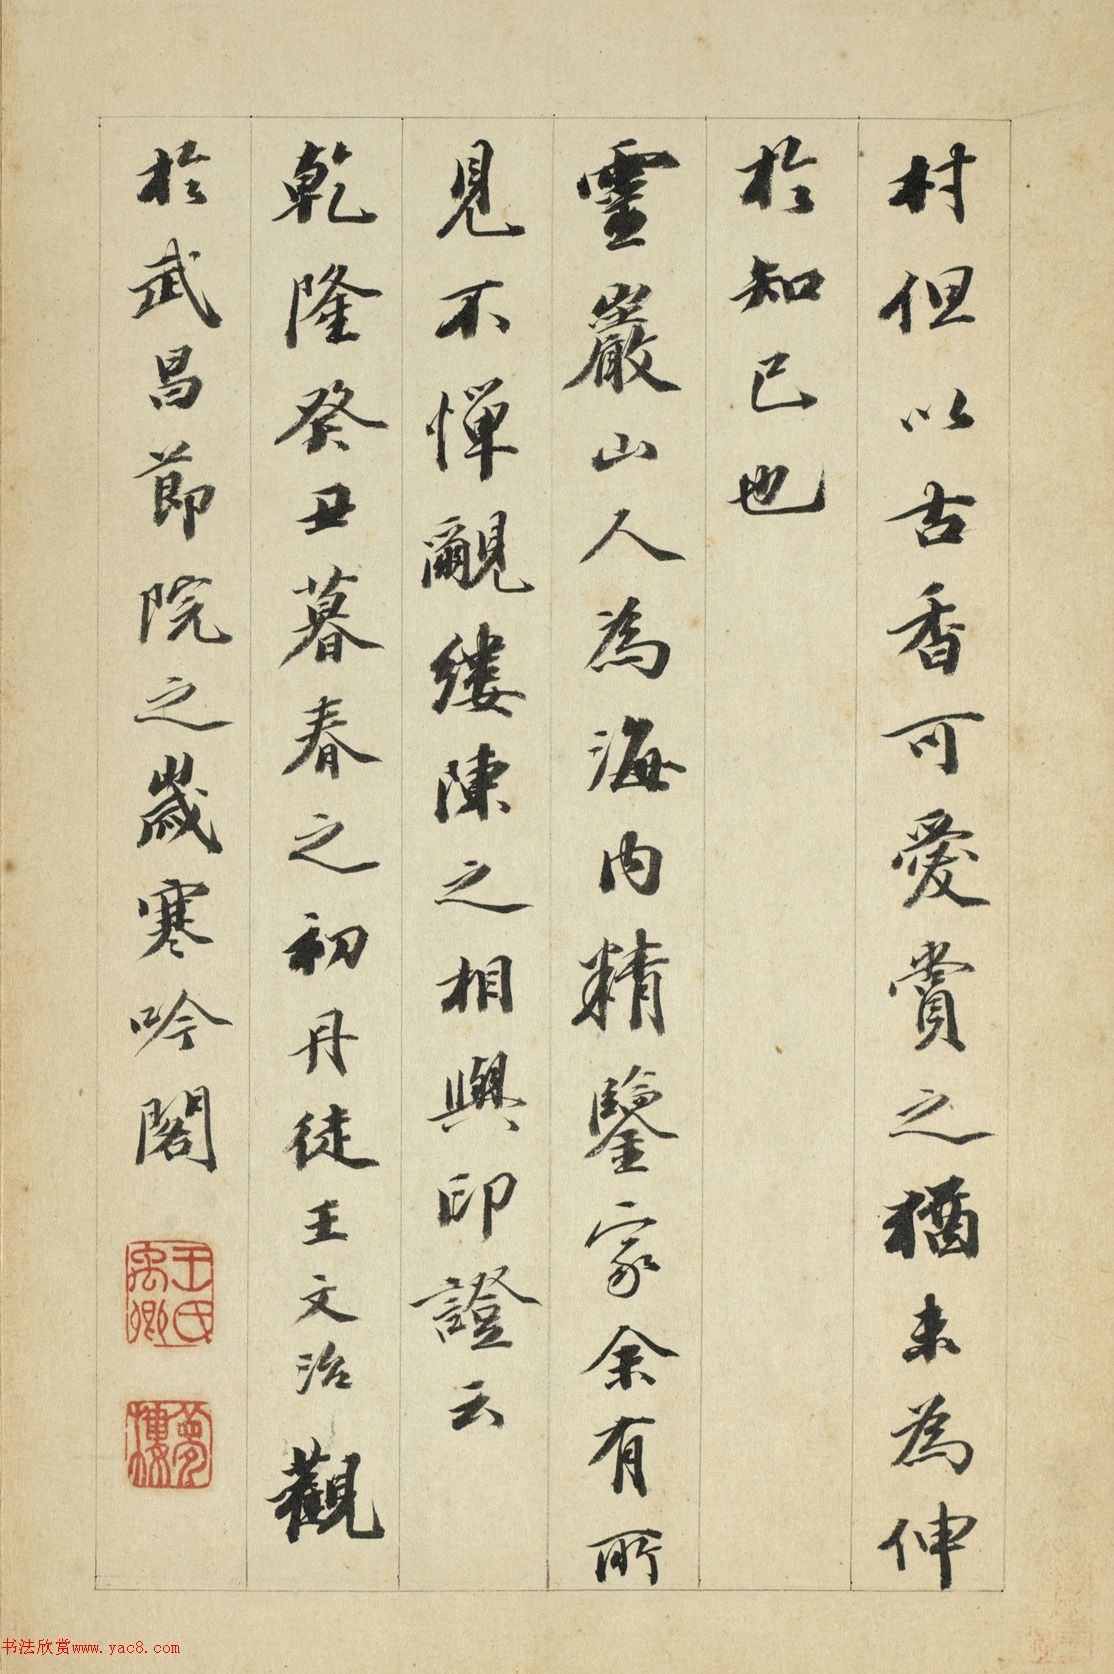 村但以古香可愛賞之猶未為伸
於知己也
靈巖山人為海內精鑒家余有所
見不憚覼縷陳之相與印證云
乾隆癸丑暮春之初丹徒王文治觀
於武昌節院之歲寒吟閣
王氏禹卿
夢樓
书法欣赏www.yac8.com